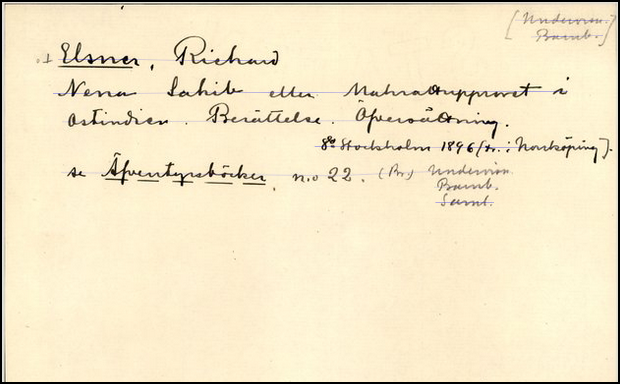 [Undervisn.
Barnb.]
Elsner, Richard
Nena Sahib eller Mahrattupproret i
Ostindien. Berättelse. Öfversättning.
8:o Stockholm 1896 (tr. i Norrköping).
se Äfventyrsböcker, n:o 22. (Br.) Undervisn.
Barnb.
Saml.